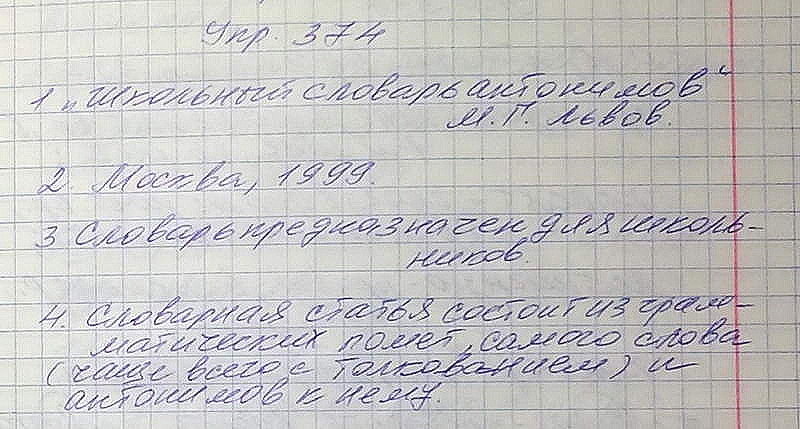 Упр. 374
1 „Школьный словарь антонимов“
М. Г. Львов.
2. Москва, 1999.
3 Словарь предназначен для школь-
ников.
4. Словарная статья состоит из грам-
матических помет, самого слова
(чаще всего с толкованием) и
антонимов к нему.